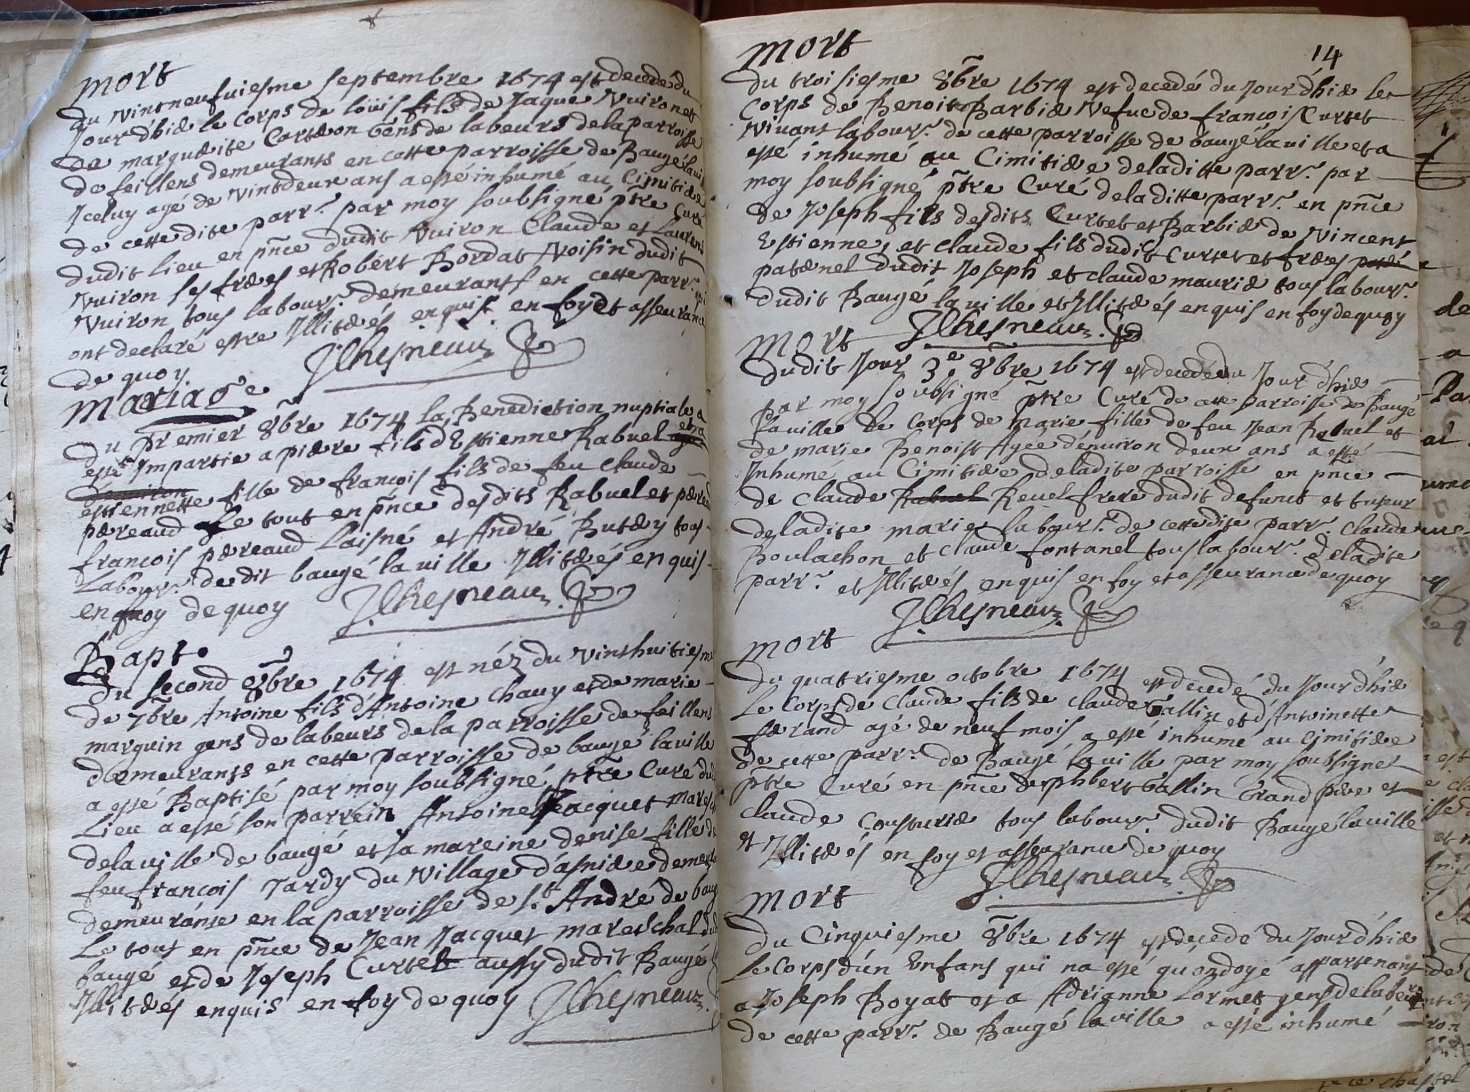 mort
du vintneufuiesme septembre 1674 est decedé du
Jourdhie le Corps de loüis fils de Jaque Vuironet
de marguerite Carteron gens de labeurs de la parroisse
de feillens demeurants en cette parroisse de Baugé la vi
Iceluy agé de vintdeux ans a esté inhumé au Cimitiere
de cette dite parr. par moy soubsigné ptre Curé
dudit lieu en pnce dudit Vuiron Claude et Laurens
Vuiron ses freres et Robert Bordat Voisin dudit
Vuiron tous labour. demeurants en cette parr.
ont declaré estre Illiterés enquis en foy et asseurance
de quoy JChesneau
Mariage
Du premier 8bre 1674 la Benediction nuptiale a
esté Impartie a piere fils d'Estienne Rabuel et a
estiennette fille de francois fils de feu Claude
pereaud le tout en pnce desdits Rabuel et pereaud
francois pereaud Laisné et André Butery tous
Labour. de dit baugé la ville Illiterés enquis
en foy de quoy JChesneau
Bapt.
Du second 8bre 1674 est néz du Vinthuitiesme
de 7bre Antoine fils d'Antoine Chavy et de marie
marguin gens de labeurs de la parroisse de feillens
demeurants en cette parroisse de baugé la ville
a esté Baptisé par moy soubsigné ptre Curé du
Lieu a esté son parrein Antoine Jacquet mares
de la ville de baugé et sa mareine denise fille de
feu francois Tardy du Village d'asniere
demeurante en la parroisse de St. André de baugé
Le tout en pnce de Jean Jacquet mareschal dud
baugé et de Joseph Curtet aussy dudit Baugé
Illiterés enquis en foy de quoy JChesneau
14
mort
du troisiesme 8bre 1674 est decedé du Jourdhie le
Corps de Benoite Barbie Vefue de francois Curtet
Vivant labour. de cette parroisse de baugé la ville et a
esté inhumé au Cimitiere de la ditte parr. par
moy soubsigné ptre Curé de la ditte parr. en pnce
de Joseph fils desdits Curtet et Barbie de Vincent
Estienne, et claude fils dudit Curtet et freres
paternel dudit Joseph et claude maurie tous labour.
dudit Baugé la ville et Illiterés enquis en foy de quoy
JChesneau
Mort
Dudit Jour 3e 8bre 1674 est decedé du Jourdhie
par moy soubsigné ptre Curé de cette parroisse de Baugé
la ville Le Corps de Marie fille de feu Jean Rebuel et
de marie Benoist Agée d'environ deux ans a esté
Inhumé au Cimitiere de ladite parroisse en pnce
de Claude Revel frere dudit defunct et tuteur
de ladite marie labour. de cette dite parr. Claude
Boulachon et Claude fontanel tous labour. de ladite
parr. et Illiterés enquis en foy et asseurance de quoy
JChesneau
mort
Du quatriesme octobre 1674 est decedé du Jourdhie
Le Corps de Claude fils de Claude Gallin et d'Antoinette
ferand agé de neuf mois a esté inhumé au Cimitiere
de cette parr. de Baugé la ville par moy soubsigné
ptre Curé en pnce de phbert Gallin Grand pere et
Claude Cousturie tous labour. dudit Baugé la ville
et Illiterés en foy et asseurance de quoy
JChesneau
mort
Du Cinquiesme 8bre 1674 est decedé du Jourdhie
Le Corps d'un Enfans qui na esté quondoyé appartenant
a Joseph Boyat et a Adrianne Cormet gens de labeurs
de cette parr. de Baugé la ville a esté inhumé